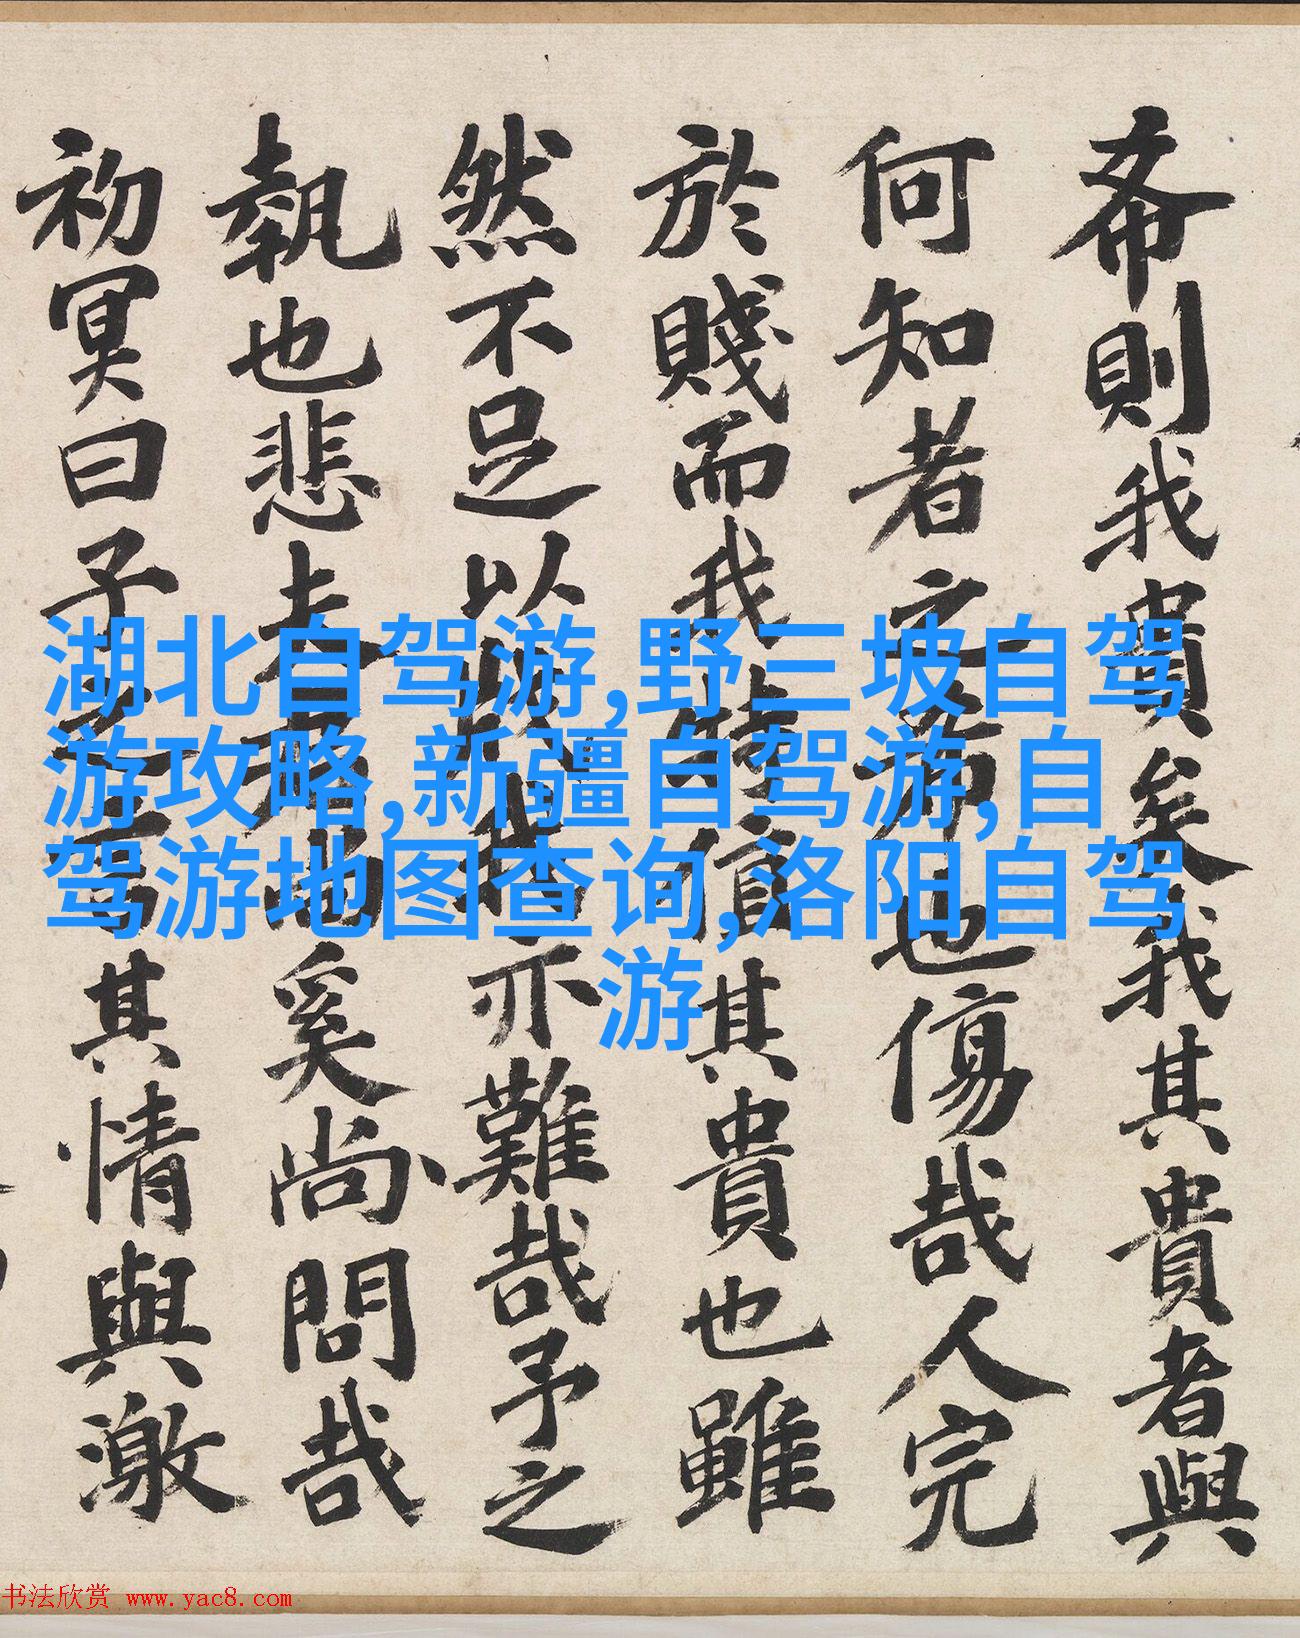 希則我貴矣我其貴者與
何知者之希也傷哉人完
於賤而我特信其貴也雖
然不足以亦難哉予之
執也悲夫奚尚問哉
初冥曰子之言其情與激
湖北自驾游,野三坡自驾
游攻略,新疆自驾游,自
驾游地图查询,洛阳自驾
游
书法欣赏 www.yac8.com